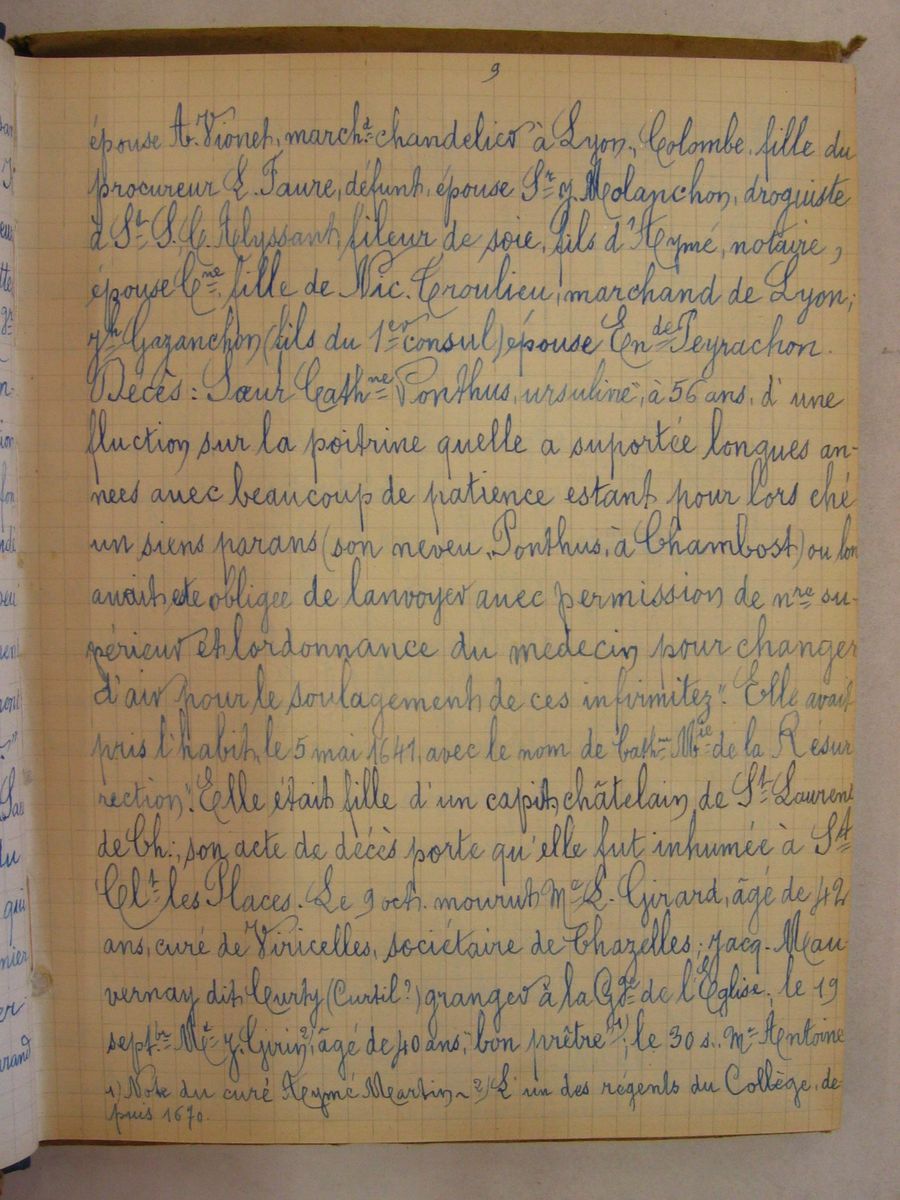 9
épouse A. Vionet, march.d chandelier à Lyon, Colombe, fille du
procureur E. Faure, défunt, épouse Sr J. Molanchon, droguiste
à St S, C. Alyssant, fileur de soie, fils d'Aymé, notaire,
épouse Cne, fille de Nic. Croulieu, marchand de Lyon;
Jh Gazanchon (fils du 1er consul) épouse En de Peyrachon.
Decès: Sœur Cathne Ponthus, ursuline", à 56 ans, d'une
fluction sur la poitrine quelle a suportée longues an-
nees avec beaucoup de patience estant pour lors ché
un siens parans (son neveu, Ponthus, à Chambost) ou lon
avait ete obligee de lanvoyer avec permission de nre su-
périeur et lordonnance du medecin pour changer
d'air pour le soulagement de ces infirmitez". Elle avait
pris l'habit, le 5 mai 1641, avec le nom de Cathne Mie de la Résur
rection". Elle était fille d'un capit. châtelain de St Laurent
de Ch.; son acte de décès porte qu'elle fut inhumée à St
Clt les Places. Le 9 oct. mourut Me L. Girard, âgé de 42
ans, curé de Viricelles, sociétaire de Chazelles; Jacq. Mau
vernay dit Curty (Curtil?) granger à la Gge de l'Eglise; le 19
septbre Mre J. Girin 2), âgé de 40 ans, "bon prêtre" 1); le 30 s. Mre Antoine
1) Note du curé Aymé Martin ~ 2) L'un des régents du Collège, de-
puis 1670.